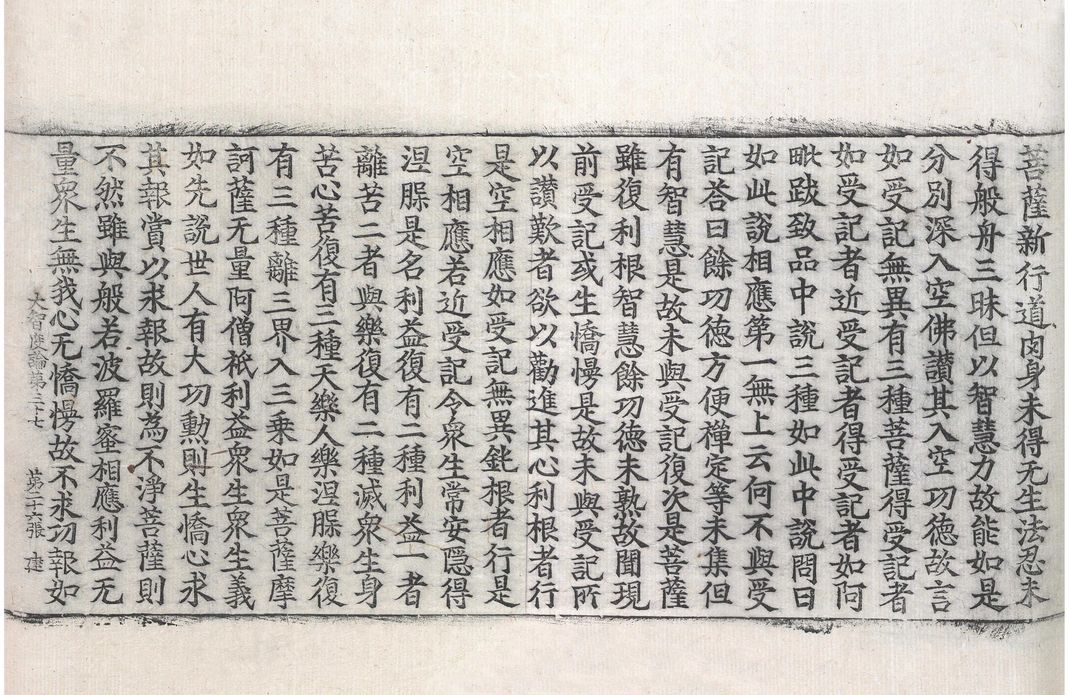 菩薩新行道肉身未得无生法忍未
得般舟三昧但以智慧力故能如是
分別深入空佛讃其入空功德故言
如受記無異有三種菩薩得受記者
如受記者近受記者得受記者如阿
毗跋致品中說三種如此中說問曰
如此說相應第一無上云何不與受
記荅曰餘功德方便禪定等未集但
有智慧是故未與受記復次是菩薩
雖復利根智慧餘功德未熟故聞現
前受記或生憍慢是故未與受記所
以讃歎者欲以勸進其心利根者行
是空相應如受記無異鈍根者行是
空相應若近受記令衆生常安隱得
涅槃是名利益復有二種利益一者
離苦二者與樂復有二種滅衆生身
苦心苦復有三種天樂人樂涅槃樂復
有三種離三界入三乘如是菩薩摩
訶薩无量阿僧祇利益衆生衆生義
如先說世人有大功勳則生憍心求
其報賞以求報故則為不淨菩薩則
不然雖與般若波羅蜜相應利益无
量衆生無我心无憍慢故不求功報如
大智度論第三十七 第二十六張 建